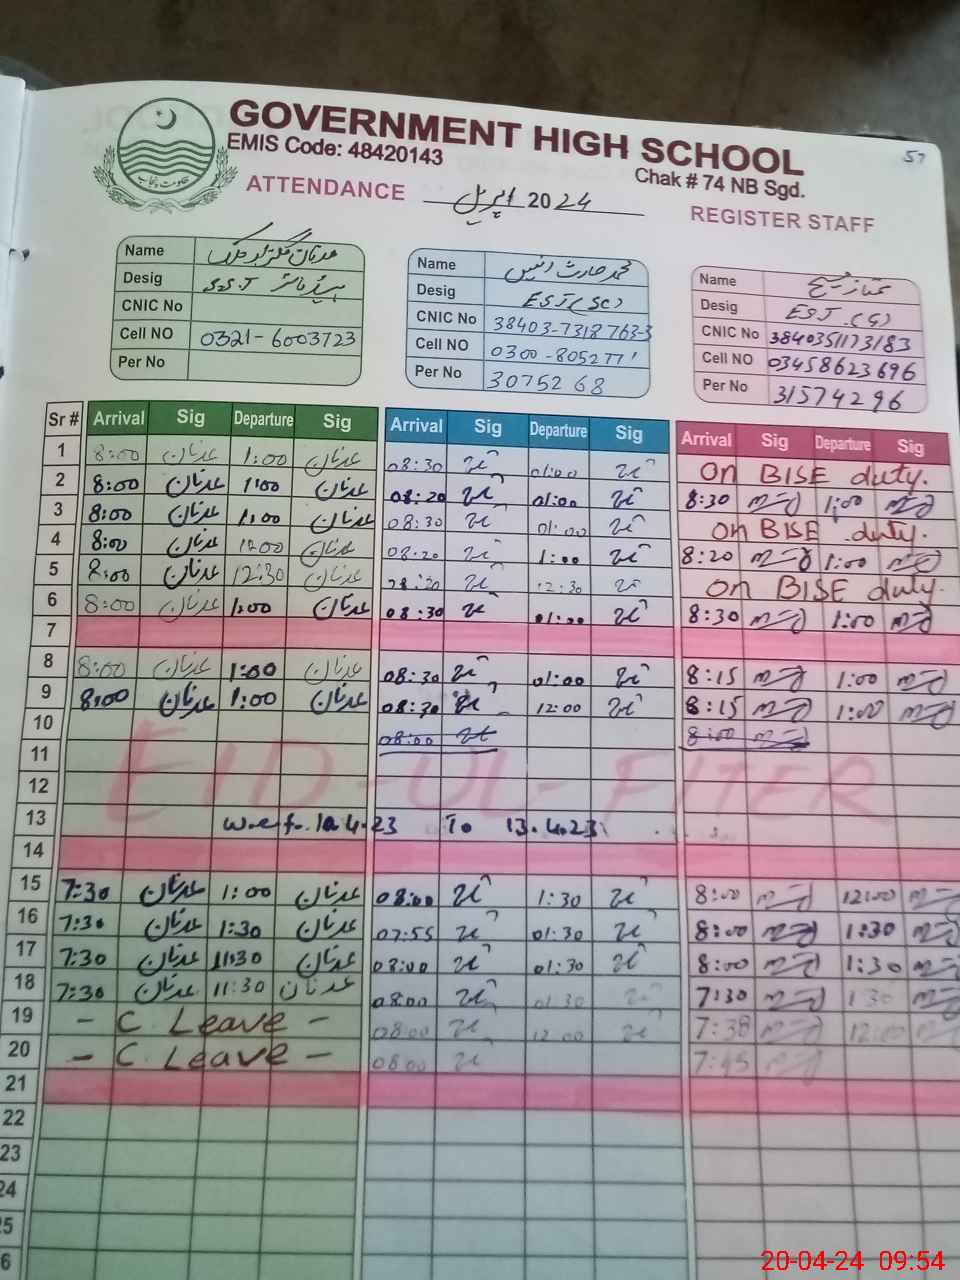 57
GOVERNMENT HIGH SCHOOL
EMIS Code: 48420143
Chak # 74 NB Sgd.
حکومت پنجاب
ATTENDANCE اپریل 2024 REGISTER STAFF
Name عدنان
Desig ہیڈ ماسٹر S.S.T
CNIC No
Cell NO 0321-6003723
Per No
Name محمد حارث انیس
Desig EST(SC)
CNIC No 38403-7318763-3
Cell NO 0300-8052771
Per No 3075268
Name ممتاز
Desig EST.(G)
CNIC No 3840351173183
Cell NO 03458623696
Per No 31574296
Sr # Arrival Sig Departure Sig Arrival Sig Departure Sig Arrival Sig Departure Sig
1 8:00 عدنان 1:00 عدنان 08:30 01:00 on BISE duty.
2 8:00 عدنان 1:00 عدنان 08:20 01:00 8:30 1:00
3 8:00 عدنان 1:00 عدنان 08:30 01:00 on BISE duty.
4 8:00 عدنان 12:00 عدنان 08:20 1:00 8:20 1:00
5 8:00 عدنان 12:30 عدنان 12:30 on BISE duty.
6 8:00 عدنان 1:00 عدنان 08:30 01:00 8:30 1:00
7
8 8:00 عدنان 1:00 عدنان 08:30 01:00 8:15 1:00
9 8:00 عدنان 1:00 عدنان 08:30 12:00 8:15 1:00
10 08:00 8:00
11 EID-UL-FITER
12
13 w.e.f. 10.4.23 To 13.4.23
14
15 7:30 عدنان 1:00 عدنان 08:00 1:30 8:00 12:00
16 7:30 عدنان 1:30 عدنان 07:55 01:30 8:00 1:30
17 7:30 عدنان 11:30 عدنان 08:00 01:30 8:00 1:30
18 7:30 عدنان 11:30 عدنان 08:00 01:30 7:30 1:30
19 - C. Leave - 08:00 12:00 7:38 12:00
20 - C. Leave - 08:00 7:45
21
22
23
24
25
6
20-04-24 09:54